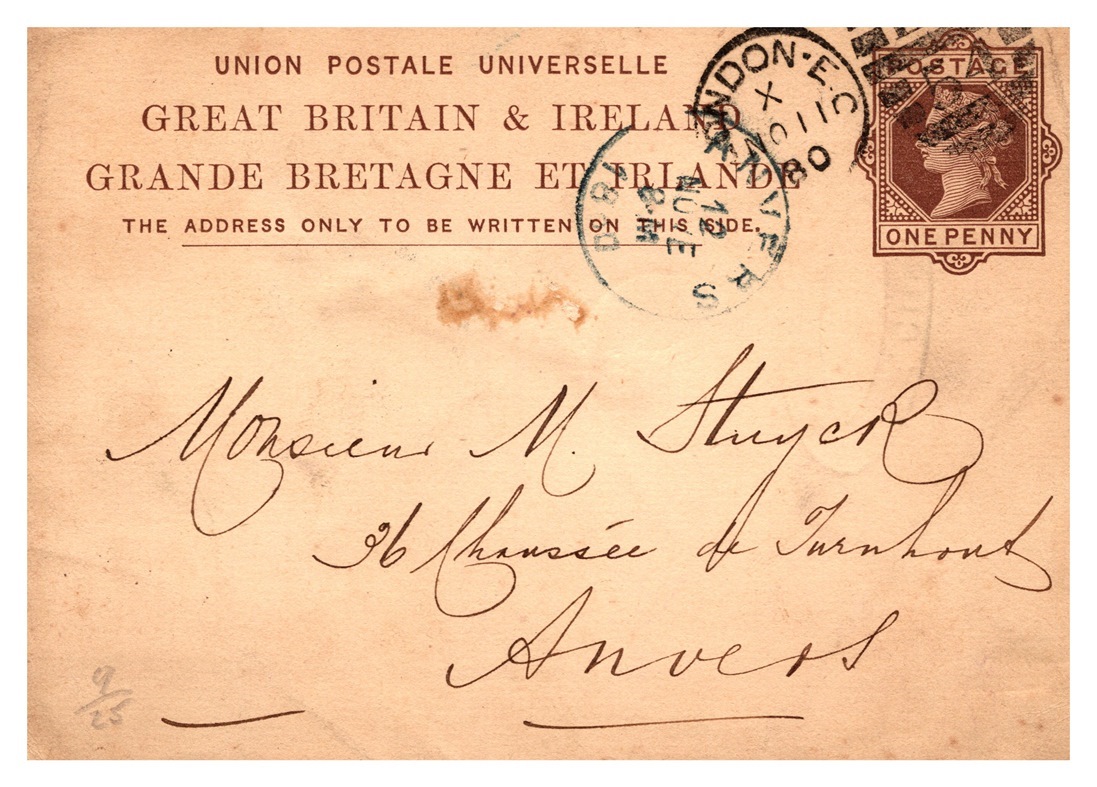 UNION POSTALE UNIVERSELLE
GREAT BRITAIN & IRELAND
GRANDE BRETAGNE ET IRLANDE
THE ADDRESS ONLY TO BE WRITTEN ON THIS SIDE.
LONDON·E.C
X
NO 11
80
POSTAGE
ONE PENNY
ANVERS
12
NOVE
8-M
Monsieur M. Stuyck
36 Chaussée de Turnhout
Anvers
9/25